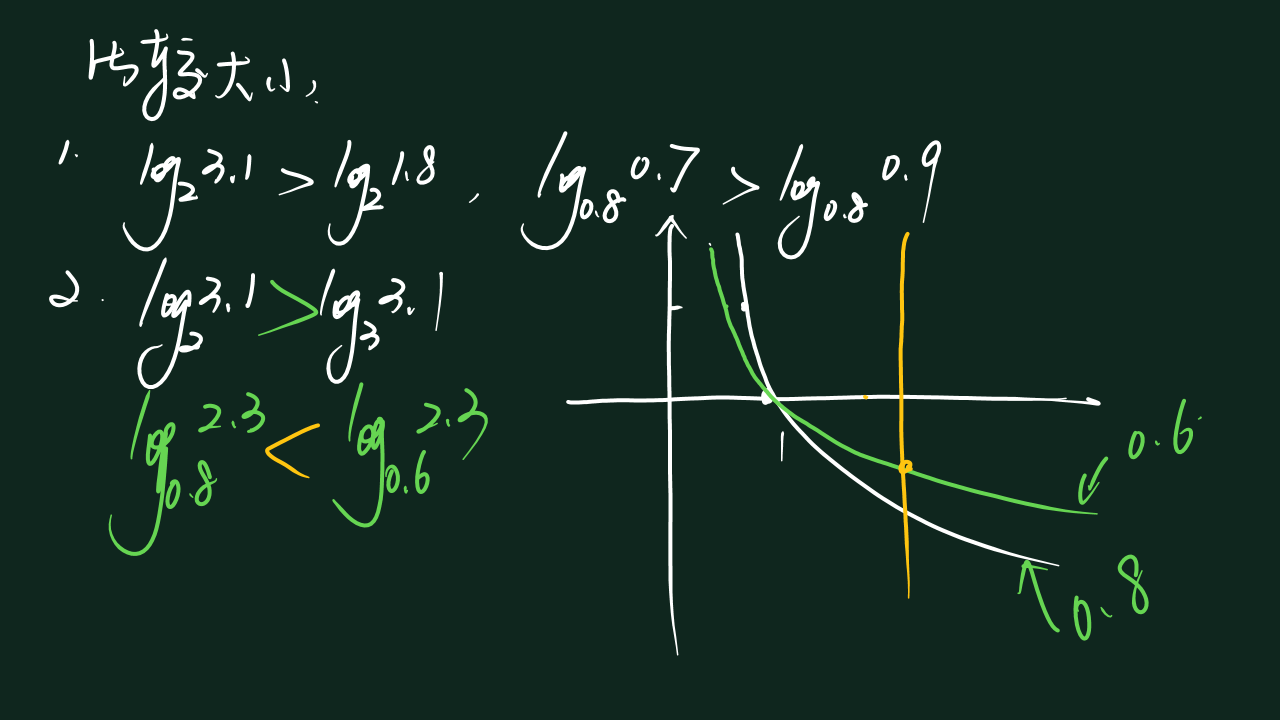 比较大小:
1. log₂3.1 > log₂1.8 , log₀.₈0.7 > log₀.₈0.9
2. log₂3.1 > log₃3.1
log₀.₈2.3 < log₀.₆2.3
1
0.6
0.8